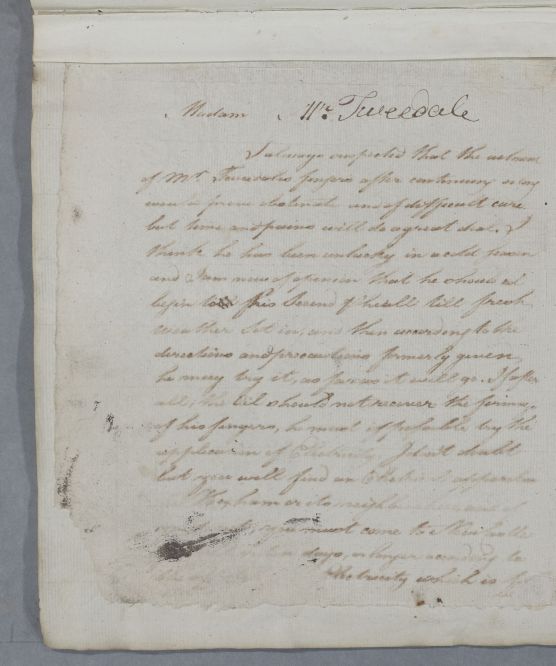 Madam Mr Tweedale
I always suspected that the
of Mr Tweedales fingers after continuing so long
would prove obstinate and of difficult cure
but time and pains will do a great deal. I
think he has been unlucky in a cold season
and I am now of opinion that he should
begin his second till fresh
weather set in, and then according to the
directions and precautions formerly given
he may try it, as far as it will go. If after
all, the oil should not recover the
of his fingers, he must if possible try the
application of Electricity I dont doubt
but you will find an Electrical apparatus
Hexham or its
you must come to Newcastle
days, or longer according to
Electricity which is